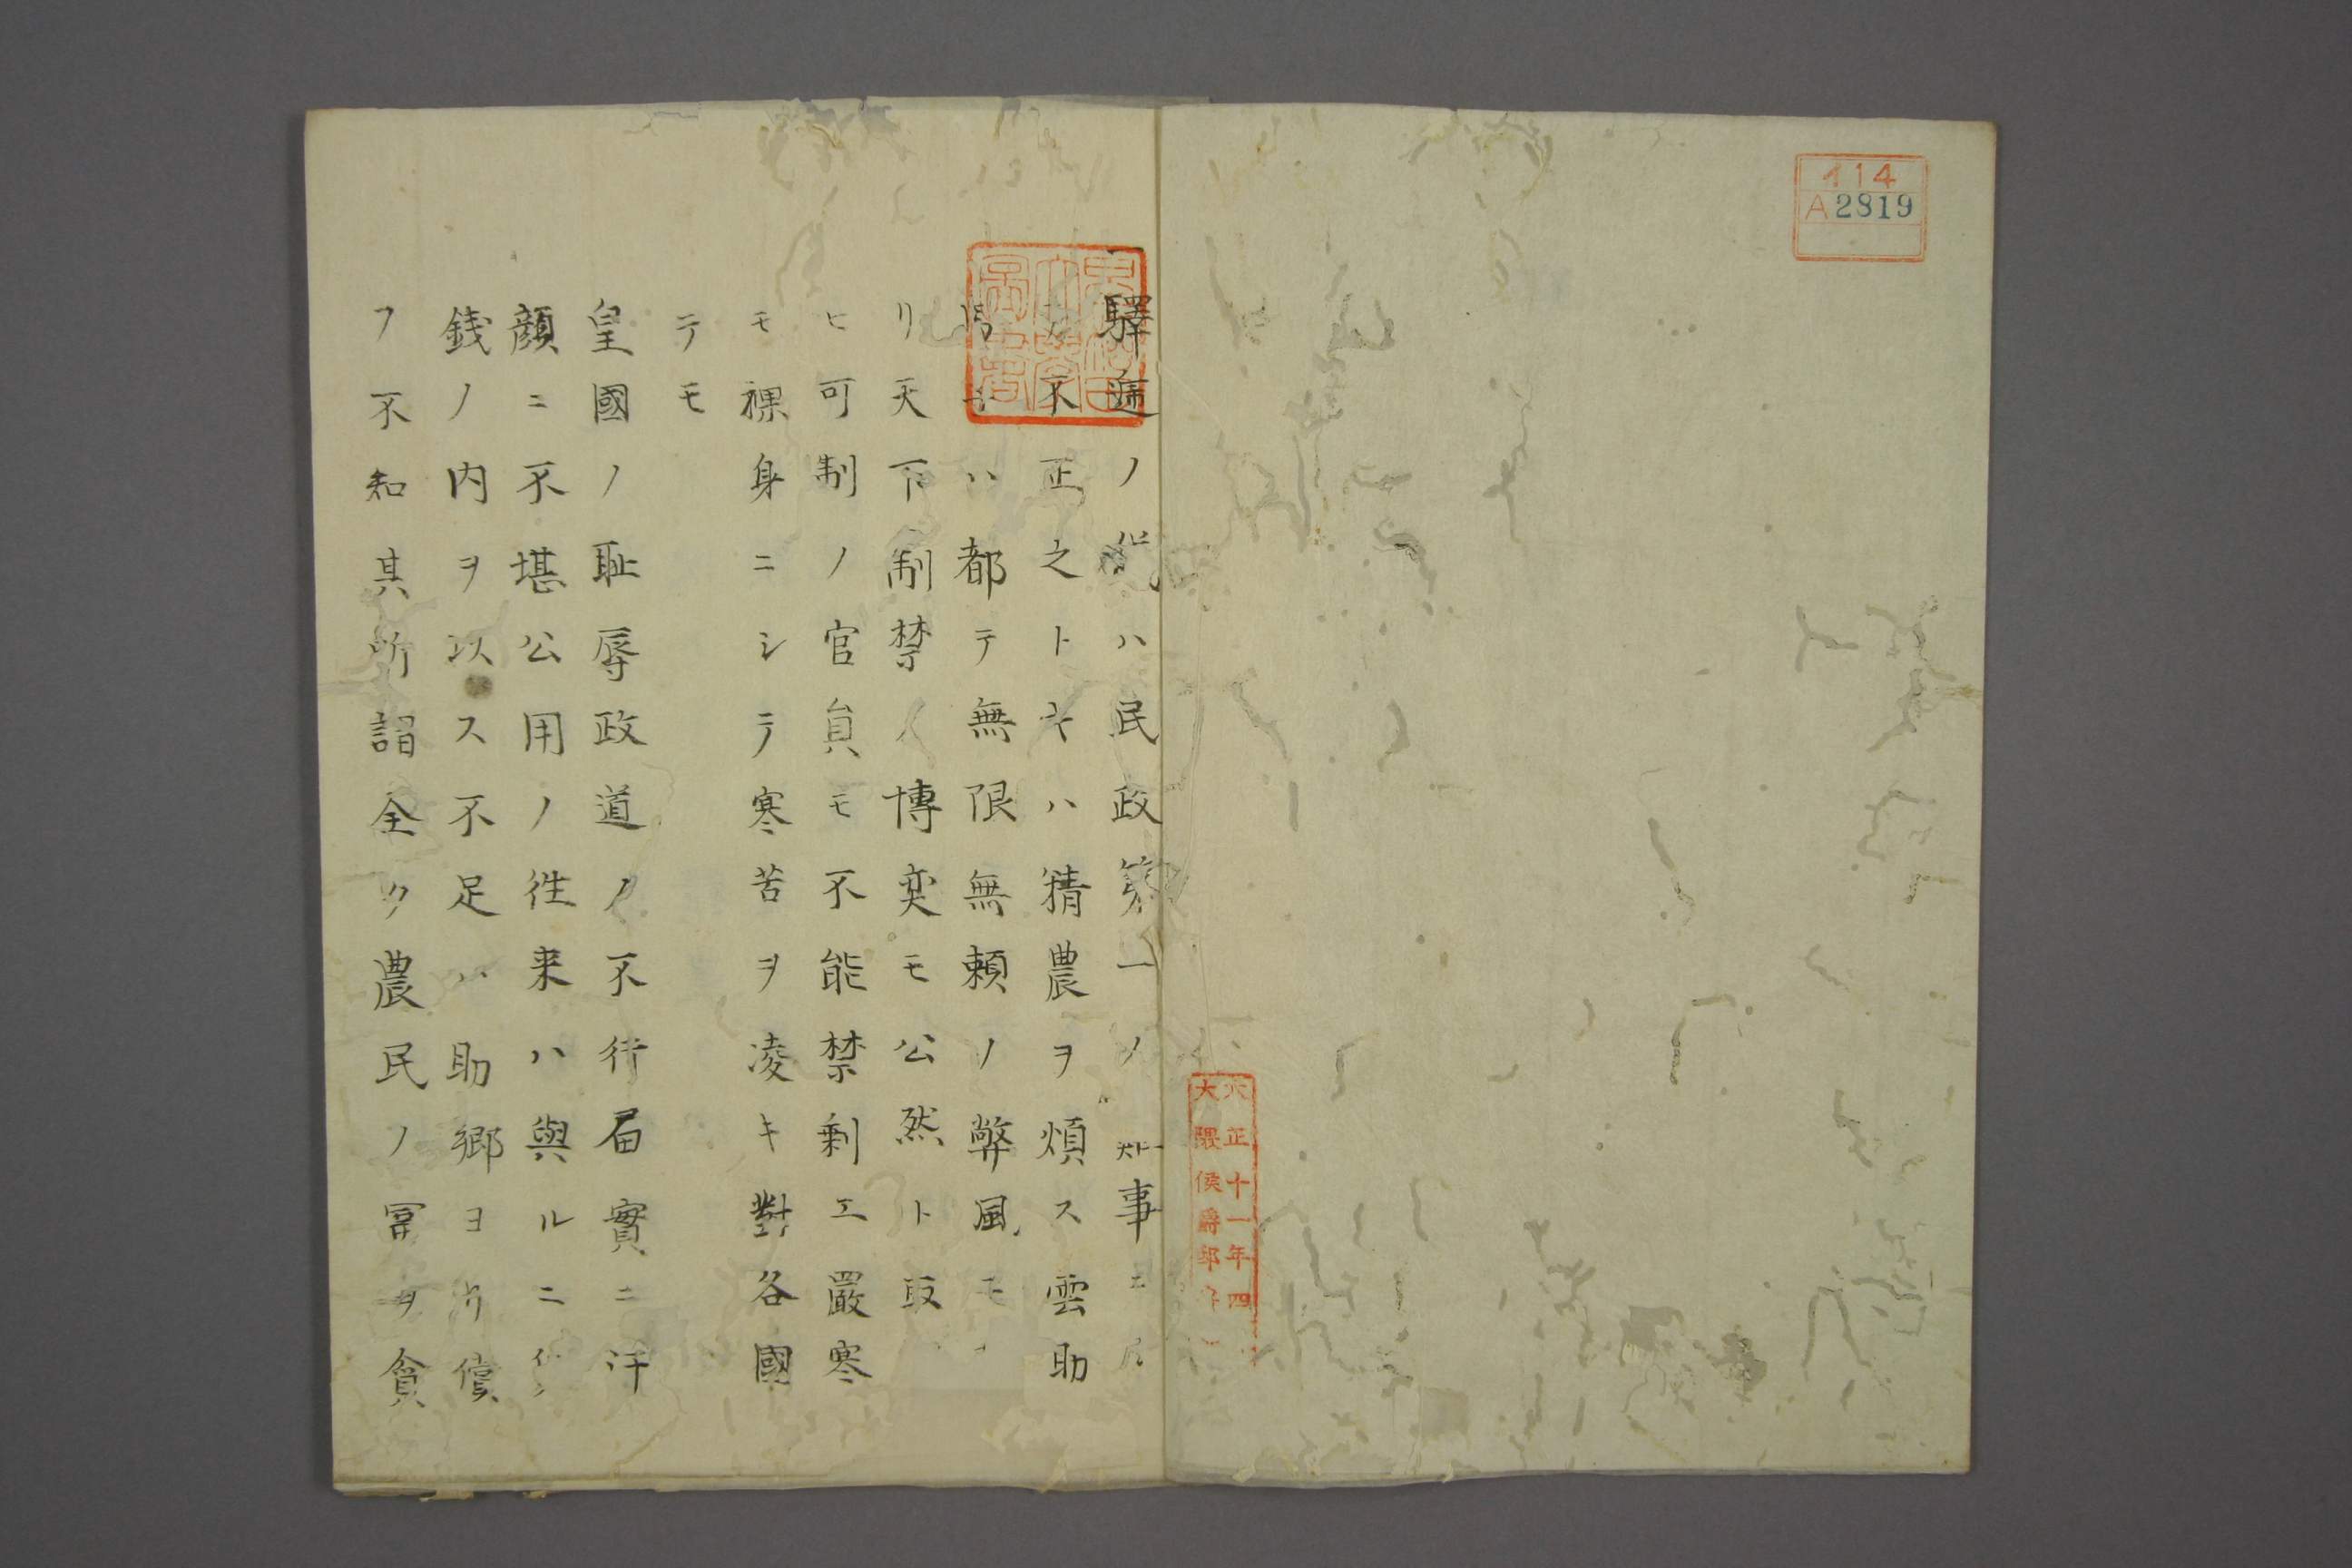 イ14
A2819
大正十一年四
大隈侯爵邸
驛逓ノ儀ハ民政第一ノ難事ニ
不正之トキハ精農ヲ煩ス雲助
ハ都テ無限無頼ノ弊風モ
リ天下制禁ノ博奕モ公然ト取
ヒ可制ノ官員モ不能禁剰エ嚴寒
モ裸身ニシテ寒苦ヲ凌キ對各國
テモ
皇國ノ耻辱政道ノ不行届實ニ汗
顔ニ不堪公用ノ徃来ハ與ルニ
銭ノ内ヲ以ス不足ハ助郷ヨリ償
フ不知其所謂全ク農民ノ冨ヲ貪